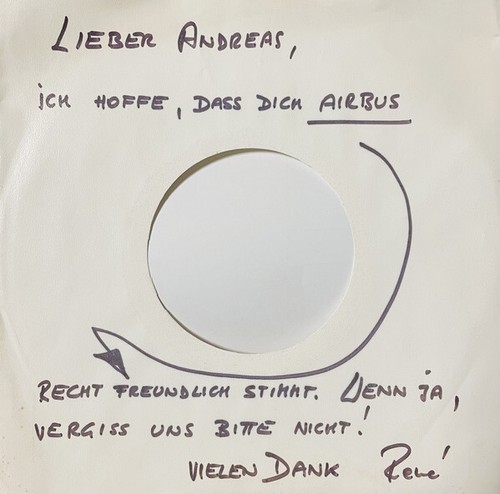 LIEBER ANDREAS,
ICH HOFFE, DASS DICH AIRBUS
RECHT FREUNDLICH STIMMT. WENN JA,
VERGISS UNS BITTE NICHT!
VIELEN DANK René